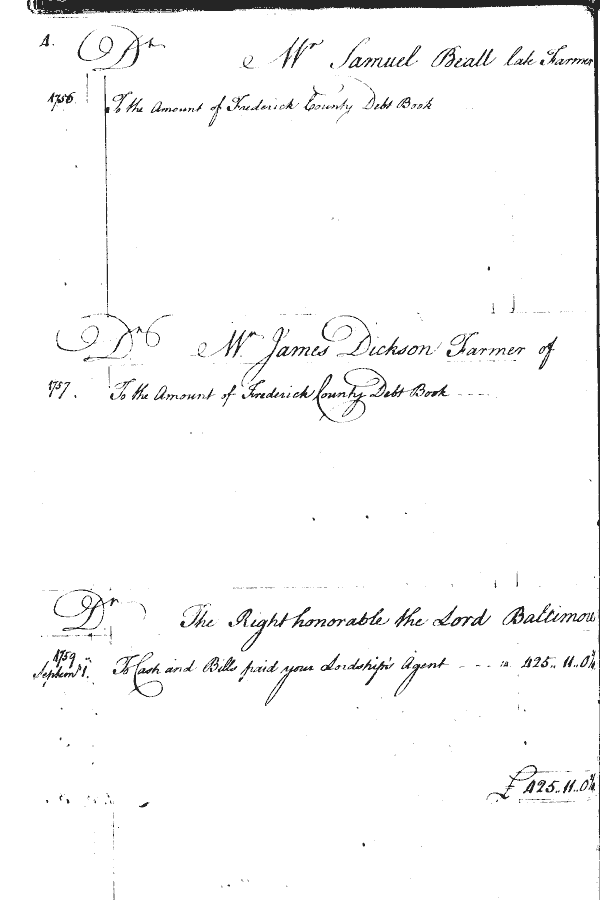 4.
Dr Mr Samuel Beall late Farmer
1756. To the Amount of Frederick County Debt Book
Dr Mr James Dickson Farmer of
1757. To the Amount of Frederick County Debt Book
Dr The Right honorable the Lord Baltimou
1759
Septemr 1. To Cash and Bills paid your Lordships Agent - - - - " 425.. 11.. 0¼
£ 425.. 11.. 0¼